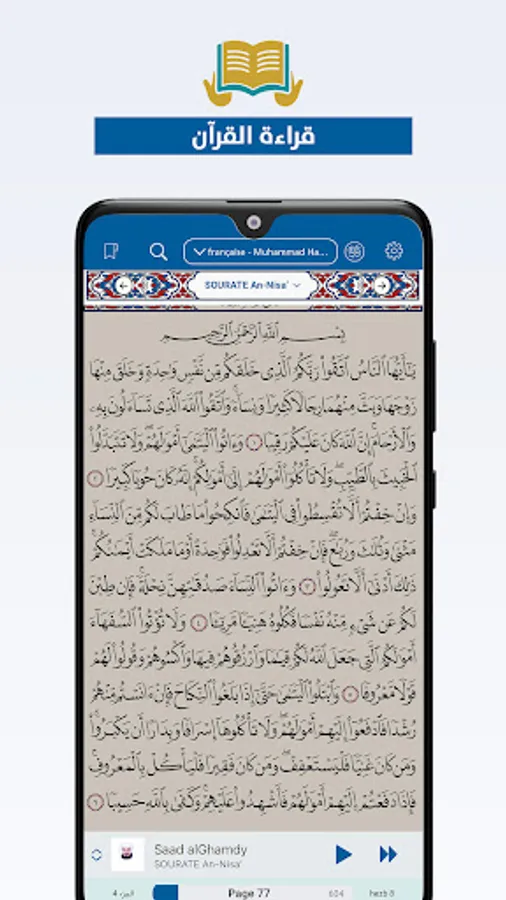 قراءة القرآن
française - Muhammad Ha...
SOURATE An-Nisa'
بِسْمِ ٱللَّهِ ٱلرَّحْمَٰنِ ٱلرَّحِيمِ
يَٰٓأَيُّهَا ٱلنَّاسُ ٱتَّقُوا۟ رَبَّكُمُ ٱلَّذِى خَلَقَكُم مِّن نَّفْسٍ وَٰحِدَةٍ وَخَلَقَ مِنْهَا
زَوْجَهَا وَبَثَّ مِنْهُمَا رِجَالًا كَثِيرًا وَنِسَآءً وَٱتَّقُوا۟ ٱللَّهَ ٱلَّذِى تَسَآءَلُونَ بِهِۦ
وَٱلْأَرْحَامَ إِنَّ ٱللَّهَ كَانَ عَلَيْكُمْ رَقِيبًا ١ وَءَاتُوا۟ ٱلْيَتَٰمَىٰٓ أَمْوَٰلَهُمْ وَلَا تَتَبَدَّلُوا۟
ٱلْخَبِيثَ بِٱلطَّيِّبِ وَلَا تَأْكُلُوٓا۟ أَمْوَٰلَهُمْ إِلَىٰٓ أَمْوَٰلِكُمْ إِنَّهُۥ كَانَ حُوبًا كَبِيرًا ٢
وَإِنْ خِفْتُمْ أَلَّا تُقْسِطُوا۟ فِى ٱلْيَتَٰمَىٰ فَٱنكِحُوا۟ مَا طَابَ لَكُم مِّنَ ٱلنِّسَآءِ
مَثْنَىٰ وَثُلَٰثَ وَرُبَٰعَ فَإِنْ خِفْتُمْ أَلَّا تَعْدِلُوا۟ فَوَٰحِدَةً أَوْ مَا مَلَكَتْ أَيْمَٰنُكُمْ
ذَٰلِكَ أَدْنَىٰٓ أَلَّا تَعُولُوا۟ ٣ وَءَاتُوا۟ ٱلنِّسَآءَ صَدُقَٰتِهِنَّ نِحْلَةً فَإِن طِبْنَ
لَكُمْ عَن شَىْءٍ مِّنْهُ نَفْسًا فَكُلُوهُ هَنِيٓـًٔا مَّرِيٓـًٔا ٤ وَلَا تُؤْتُوا۟ ٱلسُّفَهَآءَ
أَمْوَٰلَكُمُ ٱلَّتِى جَعَلَ ٱللَّهُ لَكُمْ قِيَٰمًا وَٱرْزُقُوهُمْ فِيهَا وَٱكْسُوهُمْ وَقُولُوا۟ لَهُمْ
قَوْلًا مَّعْرُوفًا ٥ وَٱبْتَلُوا۟ ٱلْيَتَٰمَىٰ حَتَّىٰٓ إِذَا بَلَغُوا۟ ٱلنِّكَاحَ فَإِنْ ءَانَسْتُم مِّنْهُمْ
رُشْدًا فَٱدْفَعُوٓا۟ إِلَيْهِمْ أَمْوَٰلَهُمْ وَلَا تَأْكُلُوهَآ إِسْرَافًا وَبِدَارًا أَن يَكْبَرُوا۟
وَمَن كَانَ غَنِيًّا فَلْيَسْتَعْفِفْ وَمَن كَانَ فَقِيرًا فَلْيَأْكُلْ بِٱلْمَعْرُوفِ
فَإِذَا دَفَعْتُمْ إِلَيْهِمْ أَمْوَٰلَهُمْ فَأَشْهِدُوا۟ عَلَيْهِمْ وَكَفَىٰ بِٱللَّهِ حَسِيبًا ٦
Saad alGhamdy
SOURATE An-Nisa'
الجزء 4 Page 77 604 hezb 8